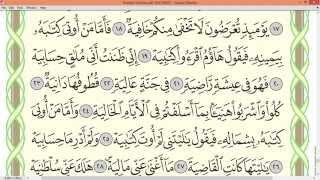 ١٧ يَوْمَئِذٍ تُعْرَضُونَ لَا تَخْفَىٰ مِنكُمْ خَافِيَةٌ ١٨ فَأَمَّا مَنْ أُوتِىَ كِتَٰبَهُۥ
بِيَمِينِهِۦ فَيَقُولُ هَآؤُمُ ٱقْرَءُوا۟ كِتَٰبِيَهْ ١٩ إِنِّى ظَنَنتُ أَنِّى مُلَٰقٍ حِسَابِيَهْ
٢٠ فَهُوَ فِى عِيشَةٍ رَّاضِيَةٍ ٢١ فِى جَنَّةٍ عَالِيَةٍ ٢٢ قُطُوفُهَا دَانِيَةٌ ٢٣
كُلُوا۟ وَٱشْرَبُوا۟ هَنِيٓـًٔۢا بِمَآ أَسْلَفْتُمْ فِى ٱلْأَيَّامِ ٱلْخَالِيَةِ ٢٤ وَأَمَّا مَنْ أُوتِىَ
كِتَٰبَهُۥ بِشِمَالِهِۦ فَيَقُولُ يَٰلَيْتَنِى لَمْ أُوتَ كِتَٰبِيَهْ ٢٥ وَلَمْ أَدْرِ مَا حِسَابِيَهْ
٢٦ يَٰلَيْتَهَا كَانَتِ ٱلْقَاضِيَةَ ٢٧ مَآ أَغْنَىٰ عَنِّى مَالِيَهْ ٢٨ هَلَكَ عَنِّى سُلْطَٰنِيَهْ